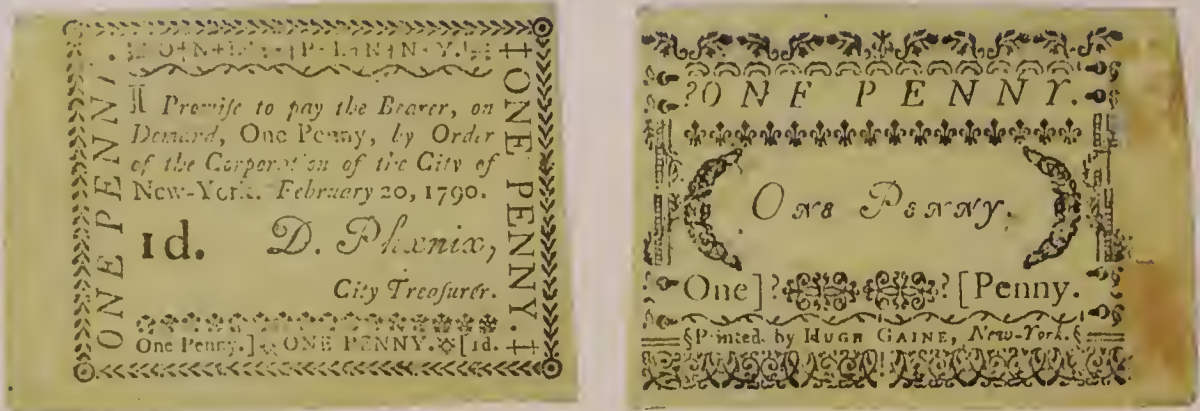 ONE PENNY.
O+N+E++P+E+N+N+Y.
I Promiſe to pay the Bearer, on
Demand, One Penny, by Order
of the Corporation of the City of
New-York. February 20, 1790.
1d. D. Phœnix,
City Treaſurer.
One Penny.] ONE PENNY. [1d.
‡ONE PENNY.‡
?ONE PENNY.
One Penny.
One]? ?[Penny.
§Printed by HUGH GAINE, New-York.§